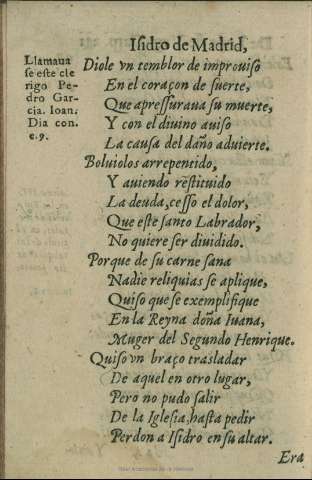 Isidro de Madrid,
Llamaua
se este cle
rigo Pe-
dro Gar-
cia. Ioan.
Dia con.
c.9.
Diole vn temblor de improuiso
En el coraçon de suerte,
Que apressuraua su muerte,
Y con el diuino auiso
La causa del daño aduierte.
Boluiolos arrepentido,
Y auiendo restituido
La deuda, cesso el dolor,
Que este santo Labrador,
No quiere ser diuidido.
Porque de su carne sana
Nadie reliquias se aplique,
Quiso que se exemplifique
En la Reyna doña Iuana,
Muger del Segundo Henrique.
Quiso vn braço trasladar
De aquel en otro lugar,
Pero no pudo salir
De la Iglesia, hasta pedir
Perdon a Isidro en su altar.
Era